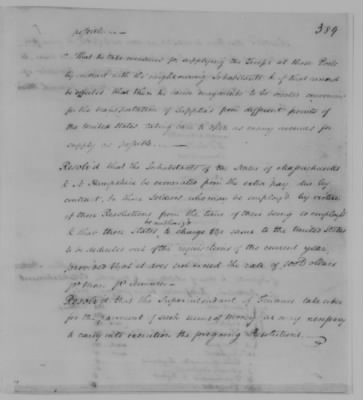 389
possible. —
2. That he take measures for supplying the Troops at those Posts
by contract with the neighbouring Inhabitants & if that cannot
be effected that then he cause magazines to be
for the transportation of Supplies from different points of
the United States taking care to open as many avenues for
supply as possible —
Resolved that the Inhabitants of the States of Massachusetts
& N. Hampshire be exonerated from the extra pay due by
contract, to those Soldiers who may be employ'd by virtue
of these Resolutions from the time of their being so employ'd
& that those States be authoris'd to charge the same to the United States
to be deducted out of the requisitions of the current year,
provided that it does not exceed the rate of dollars
pr man pr
Resolved that the Superintendant of Finance take order
for the payment of such sums of money as may necessary
to carry into execution the foregoing Resolutions. —